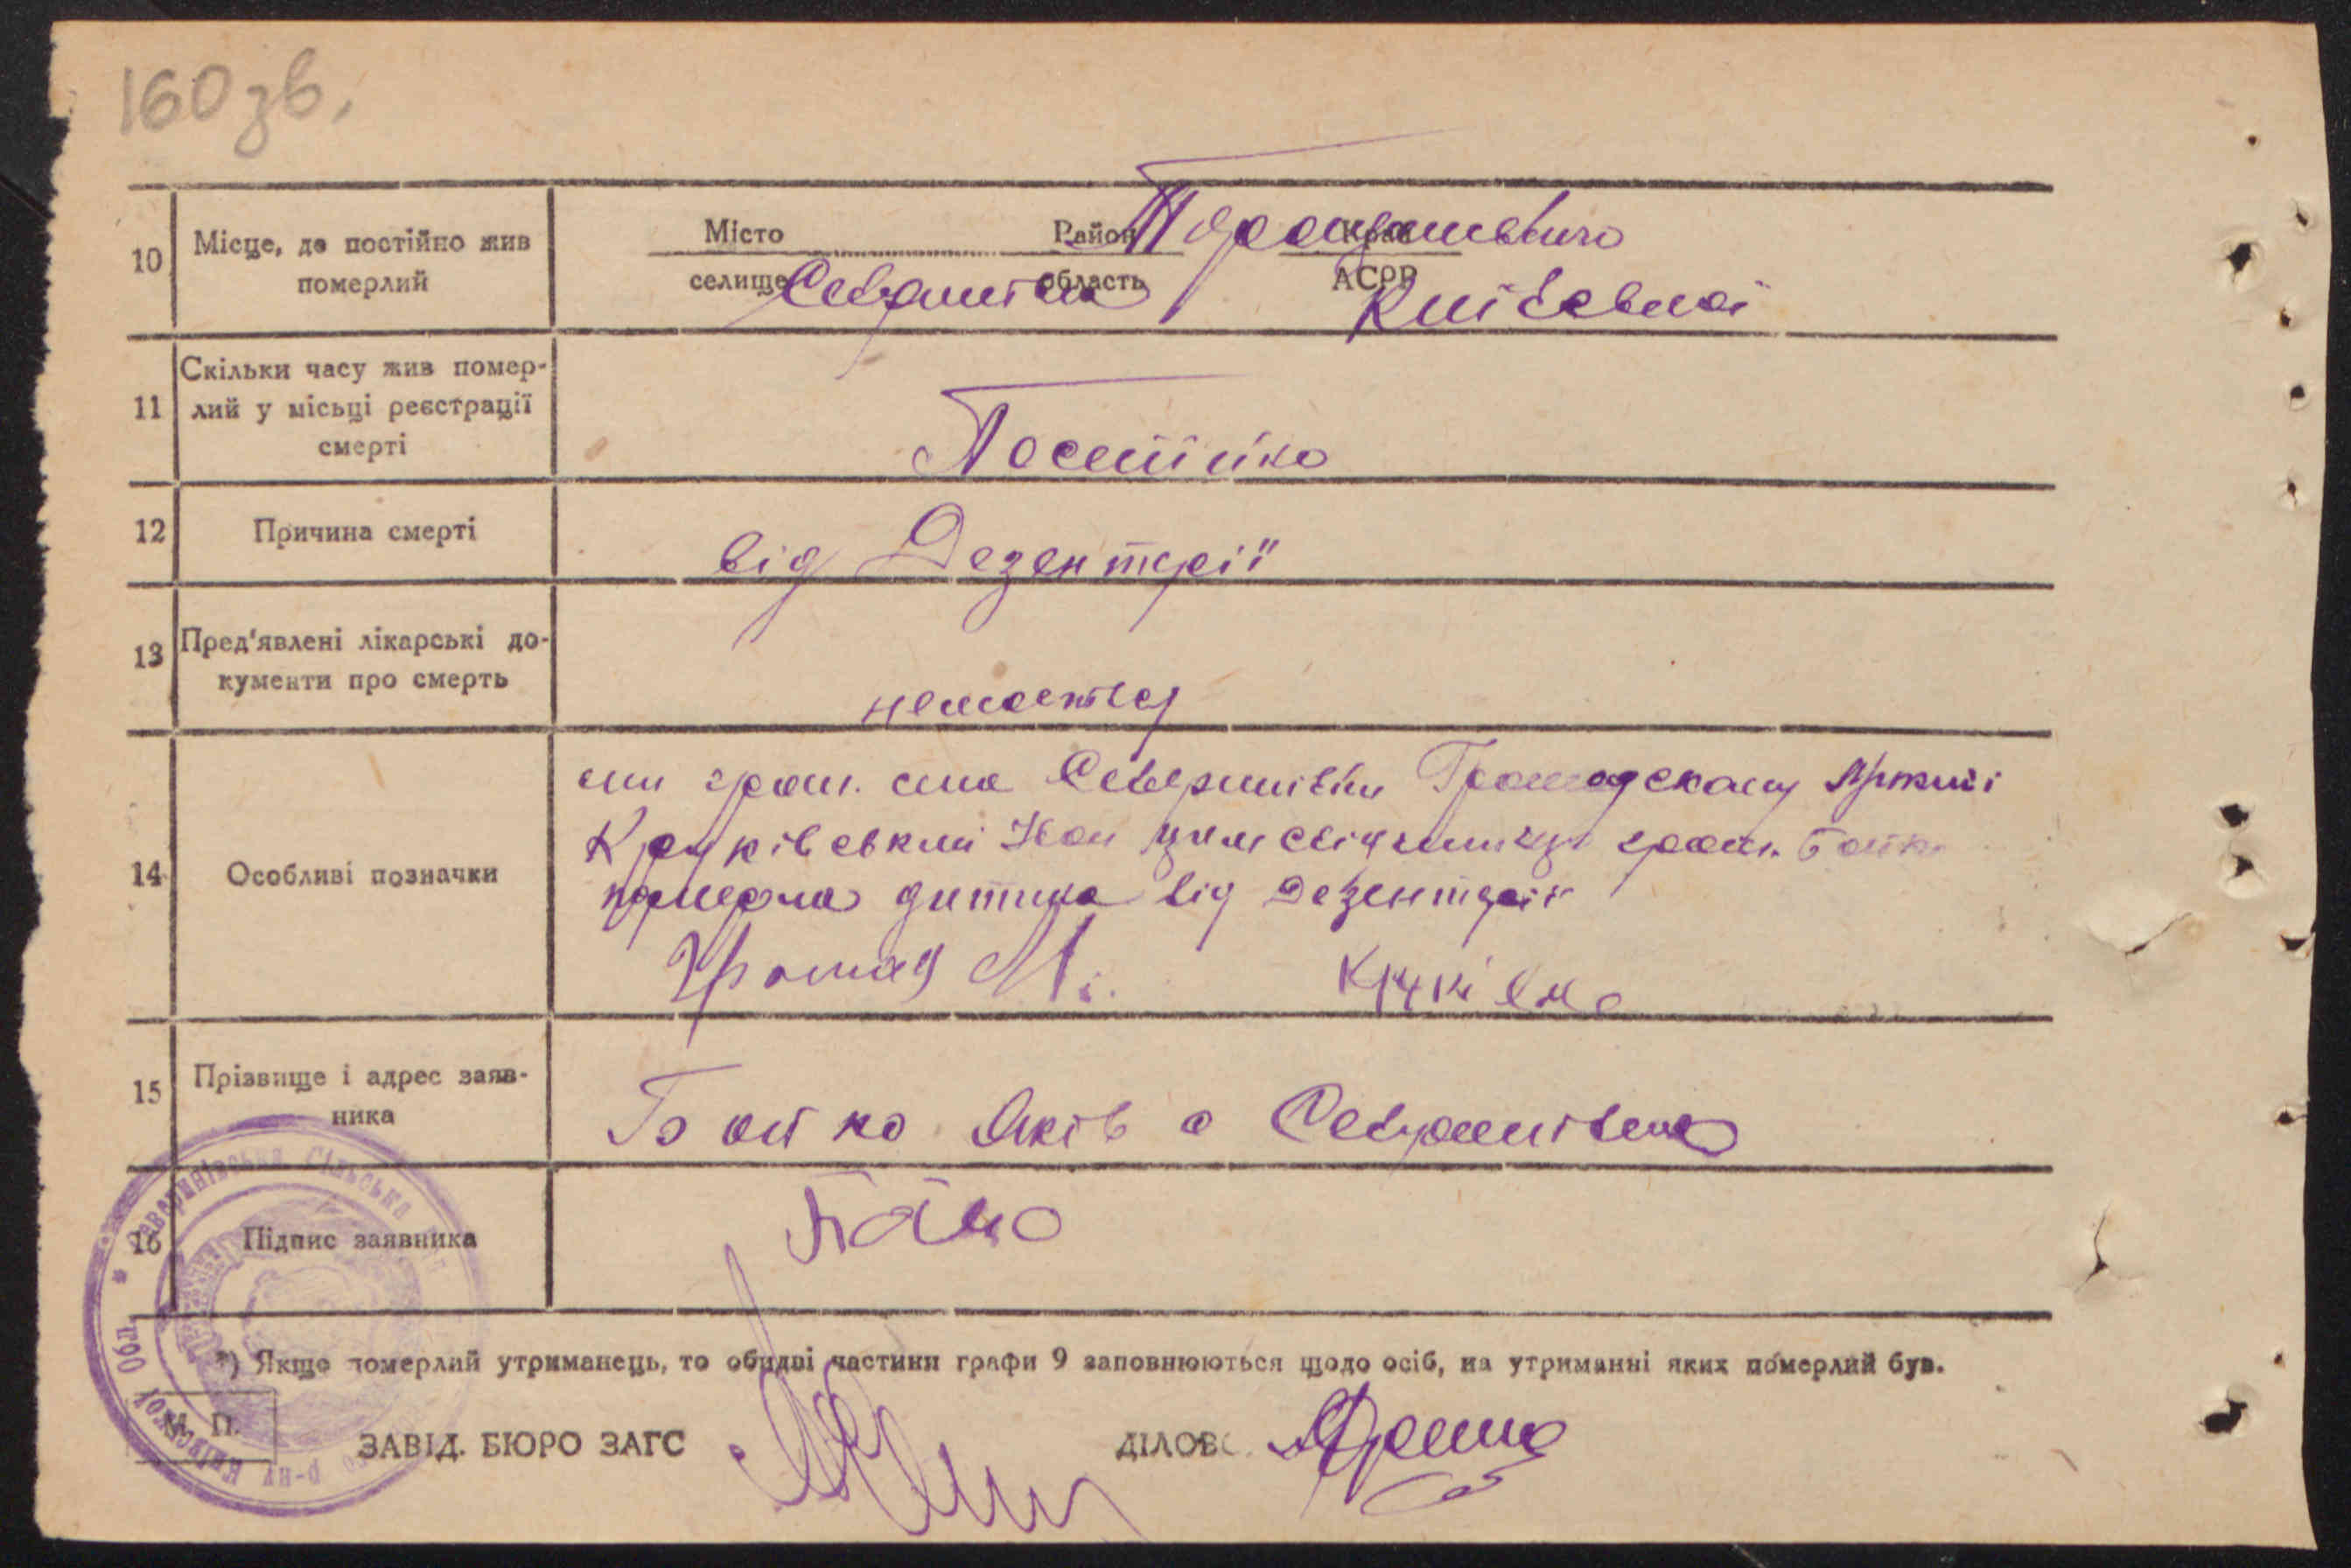 160 зв.
10 Місце, де постійно жив померлий
Місто Район Край
селище область АСРР Київської
11 Скільки часу жив помер-
лий у місьці реєстрації
смерті
Постійно
12 Причина смерті
від Дезентерії
13 Пред'явлені лікарські до-
кументи про смерть
немається
14 Особливі позначки
ми гром. села Северинівки
Круківський Іван цим свідчимо гром.
померла дитина від Дезентерії
15 Прізвище і адрес заяв-
ника
Бойко Яків с Северинівка
16 Підпис заявника
Бойко
*) Якщо померлий утриманець, то обидві частини графи 9 заповнюються щодо осіб, на утриманні яких померлий був.
М. П.
ЗАВІД. БЮРО ЗАГС
ДІЛОВ
сільська
р-ну Київської Обл.